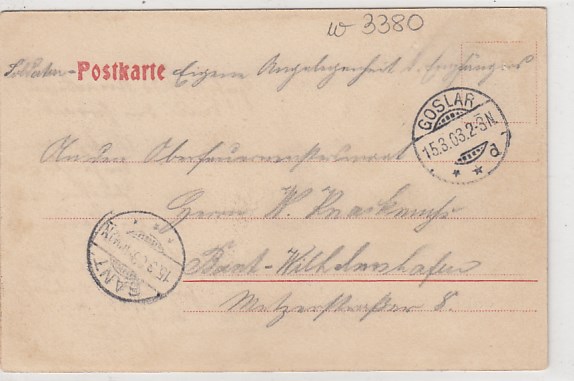 w 3380
Soldaten- Postkarte Eigene Angelegenheit d. Empfängers
GOSLAR
15.3.03.2-3N.
d
An den Oberfeuerwerksmaat
Herrn W.
BANT
15.3.
Bant-Wilhelmshafen
Metzerstraße 8.